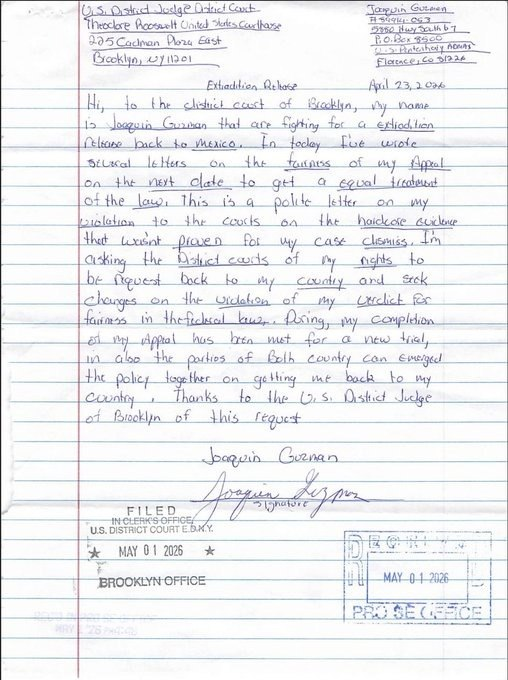 U.S. District Judge District Court
Theodore Roosevelt United States Courthouse
225 Cadman Plaza East
Brooklyn, NY 11201
Joaquin Guzman
5880 Hwy South 67
P.O. Box 8500
U.S. Penitentiary
Florence, Co 81226
Extradition Release
April 23, 2026
Hi, to the district court of Brooklyn, my name
is Joaquin Guzman that are fighting for a extradition
release back to mexico. In today I've wrote
several letters on the fairness of my Appeal
on the next date to get a equal treatment
of the law. This is a polite letter on my
violation to the courts on the hardcore evidence
that wasn't proven for my case dismiss. I'm
asking the District courts of my rights to
be request back to my country and seek
changes on the violation of my verdict for
fairness in the federal law. During, my completion
of my Appeal has been met for a new trial,
in also the parties of Both country can emerged
the policy together on getting me back to my
country. Thanks to the U.S. District Judge
of Brooklyn of this request
Joaquin Guzman
Signature
FILED
IN CLERK'S OFFICE
U.S. DISTRICT COURT E.D.N.Y.
★ MAY 01 2026 ★
BROOKLYN OFFICE
MAY 01 2026
PRO SE OFFICE